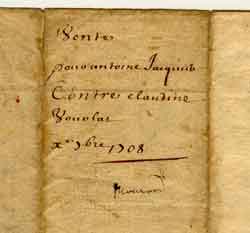 Vente
pour antoine Jacquin
Contre claudine
Vouolat
x 9bre 1708